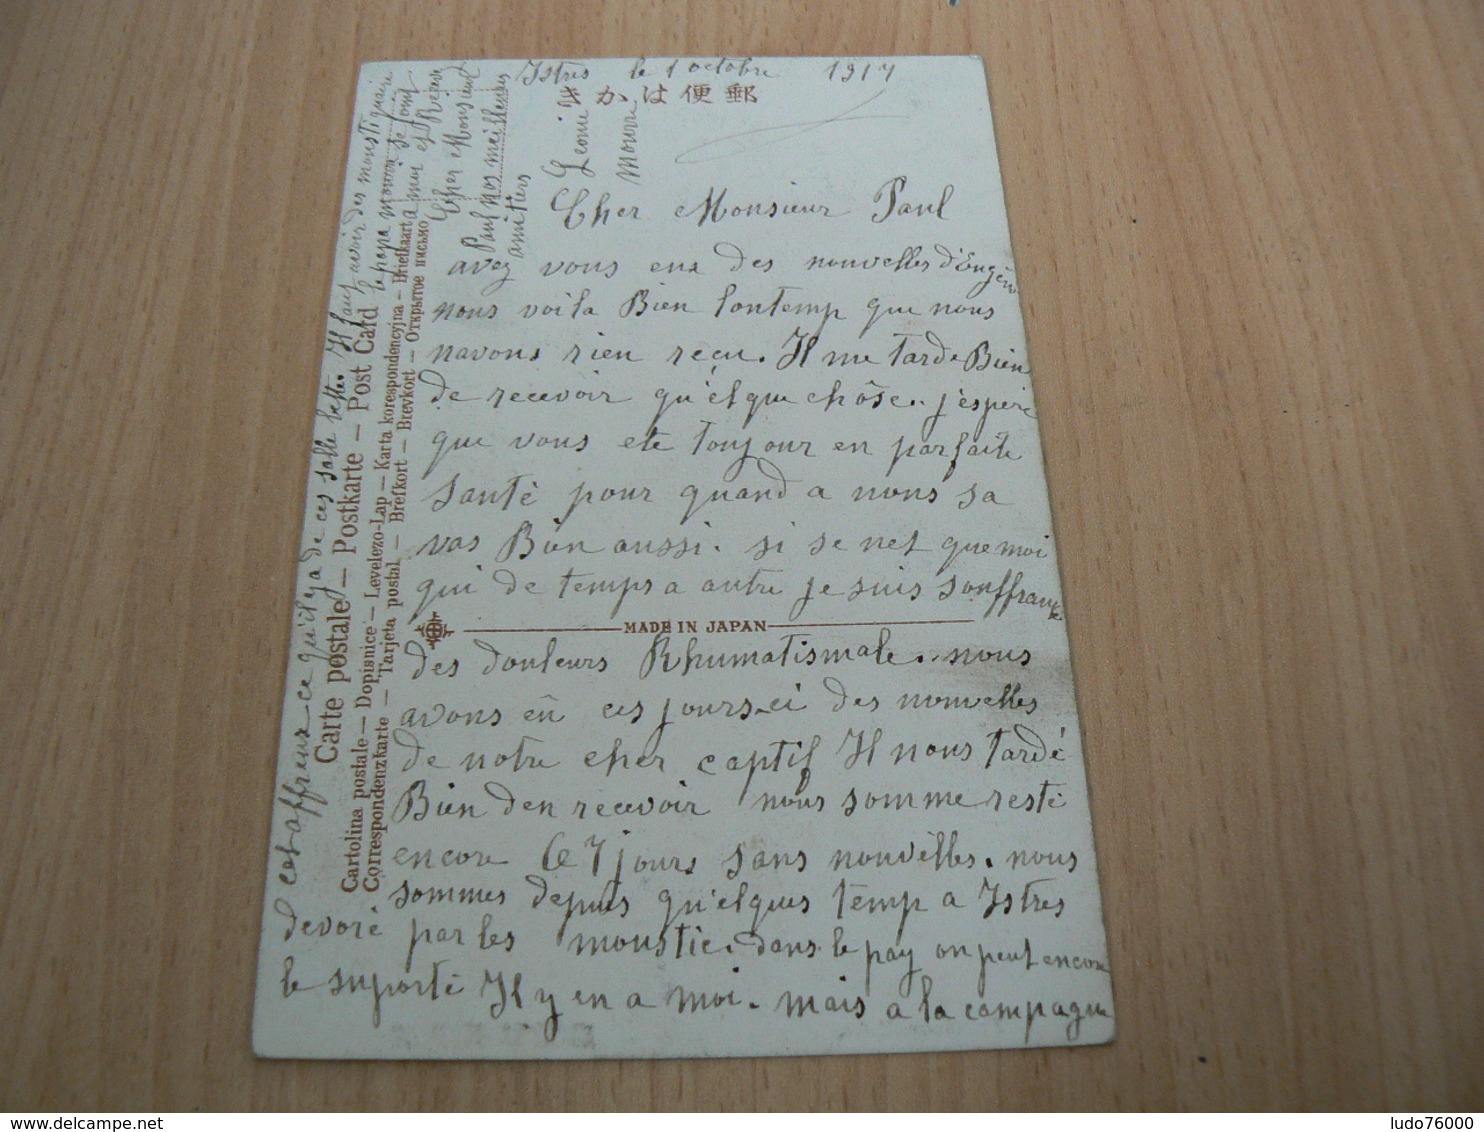 Istres le 1 octobre 1917
きかは便郵
Cher Monsieur Paul
avez vous eux des nouvelles d'Eugène
nous voila Bien lontemp que nous
navons rien recu. Il me tarde Bien
de recevoir qu'élque chôse. j'espère
que vous ete toujour en parfaite
santé pour quand a nous sa
vas Bien aussi. si se net que moi
qui de temps a autre je suis souffrante
MADE IN JAPAN
des douleurs Rhumatismale. nous
avons eû ces jours-ci des nouvelles
de notre cher captif Il nous tardé
Bien den recevoir nous somme resté
encore 67 jours sans nouvèlles. nous
sommes depuis qu'elques temp a Istres
devoré par les moustic. dans le pay on peut encore
le suporté Il y en a moi. mais a la campagne
cet affreux ce qu'il y a de ces salle bette. Il faut avoir des moustiquaire
le papa se font
Cher Monsieur
Paul nos meilleures
amitiers
Leonie
Mourre
Carte postale – Postkarte – Post Card
Cartolina postale – Dopisnice – Levelezo-Lap – Karta korespondencyjna – Briefkaart
Correspondenzkarte – Tarjeta postal – Brefkort – Brevkort – Открытое письмо
ludo76000